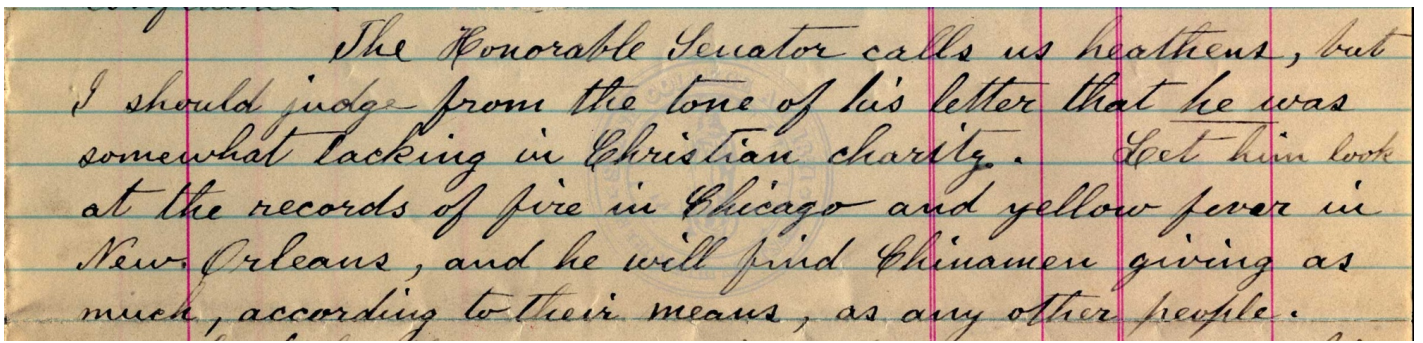 The Honorable Senator calls us heathens, but
I should judge from the tone of his letter that he was
somewhat lacking in Christian charity. Let him look
at the records of fire in Chicago and yellow fever in
New. Orleans, and he will find Chinamen giving as
much, according to their means, as any other people.